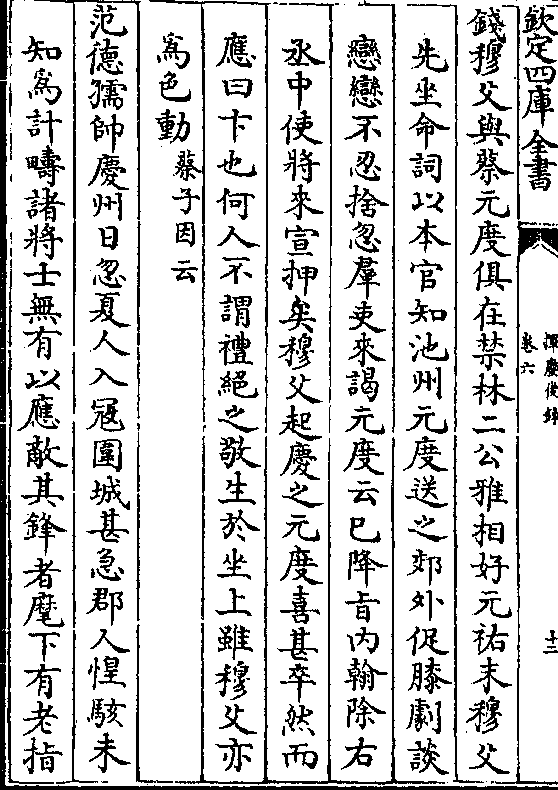 欽定四庫全書
揮麈後錄
卷六
十三
錢穆父與蔡元度俱在禁林二公雅相好元祐末穆父
先坐命詞以本官知池州元度送之郊外促膝劇談
戀戀不忍捨忽羣吏來謁元度云已降旨內翰除右
丞中使將來宣押矣穆父起慶之元度喜甚卒然而
應曰卞也何人不謂禮絕之敬生於坐上雖穆父亦
爲色動蔡子因云
范德孺帥慶州日忽夏人入冦圍城甚急郡人惶駭未
知爲計疇諸將士無有以應敵其鋒者麾下有老指